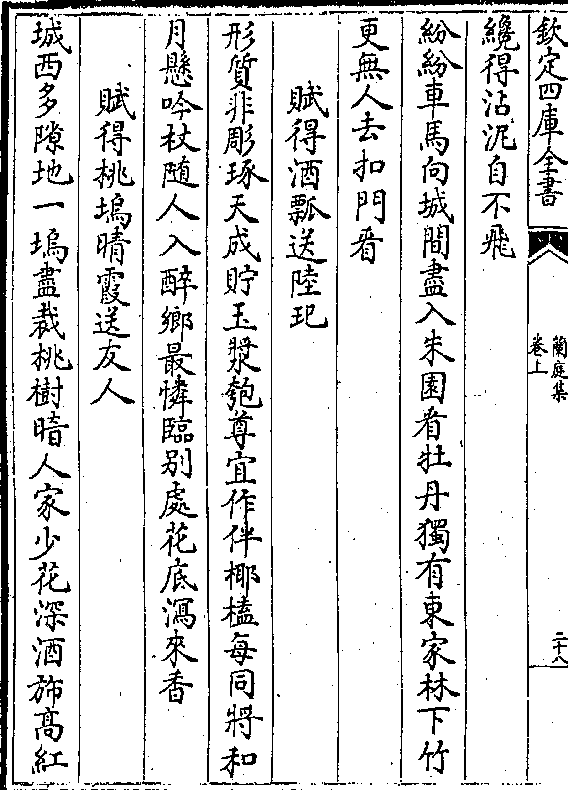 欽定四庫全書
蘭庭集
卷上
二十八
纔得沾泥自不飛
紛紛車馬向城間盡入朱園看牡丹獨有東家林下竹
更無人去扣門看
賦得酒瓢送陸玘
形質非彫琢天成貯玉漿匏尊宜作伴椰榼每同將和
月懸吟杖随人入醉鄉最憐臨别處花底瀉來香
賦得桃塢晴霞送友人
城西多隙地一塢盡裁桃樹暗人家少花深酒斾高紅